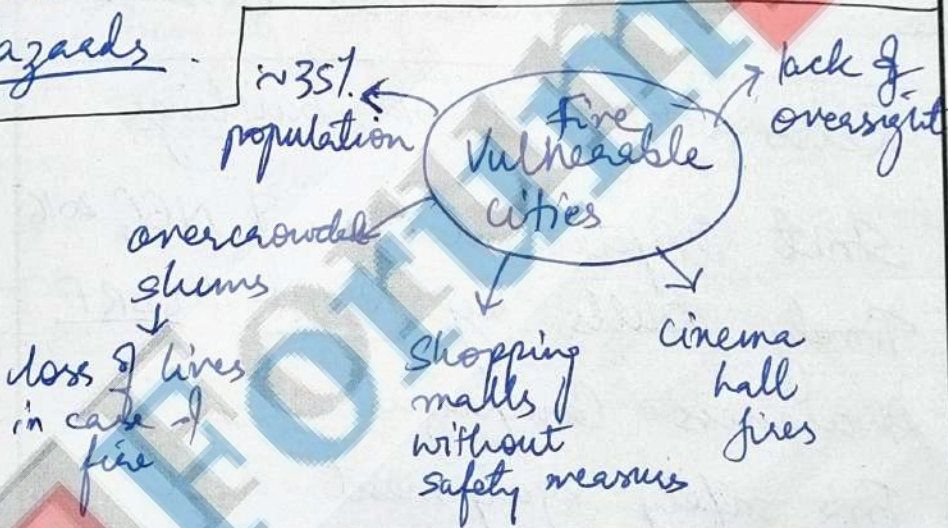 azards.
~35%
population
Fire
Vulnerable
cities
lack of
oversight
overcrowded
slums
loss of lives
in case of
fire
Shopping
malls
without
safety measures
Cinema
hall
fires
Forum